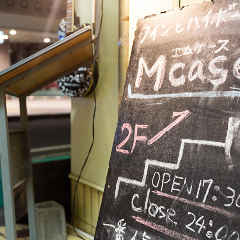 ワインとハイボー
エムケース
Mcase
2F
OPEN 17:30
close 24:00